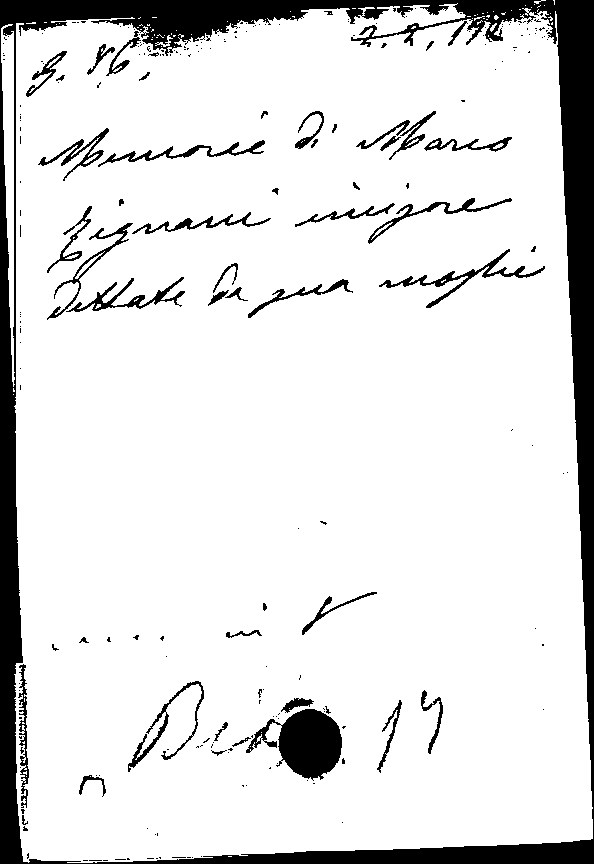 G. 86.
2.2.192
Memorie di Mario
Zignani
dettate da sua moglie
..... in 8
Bio 14